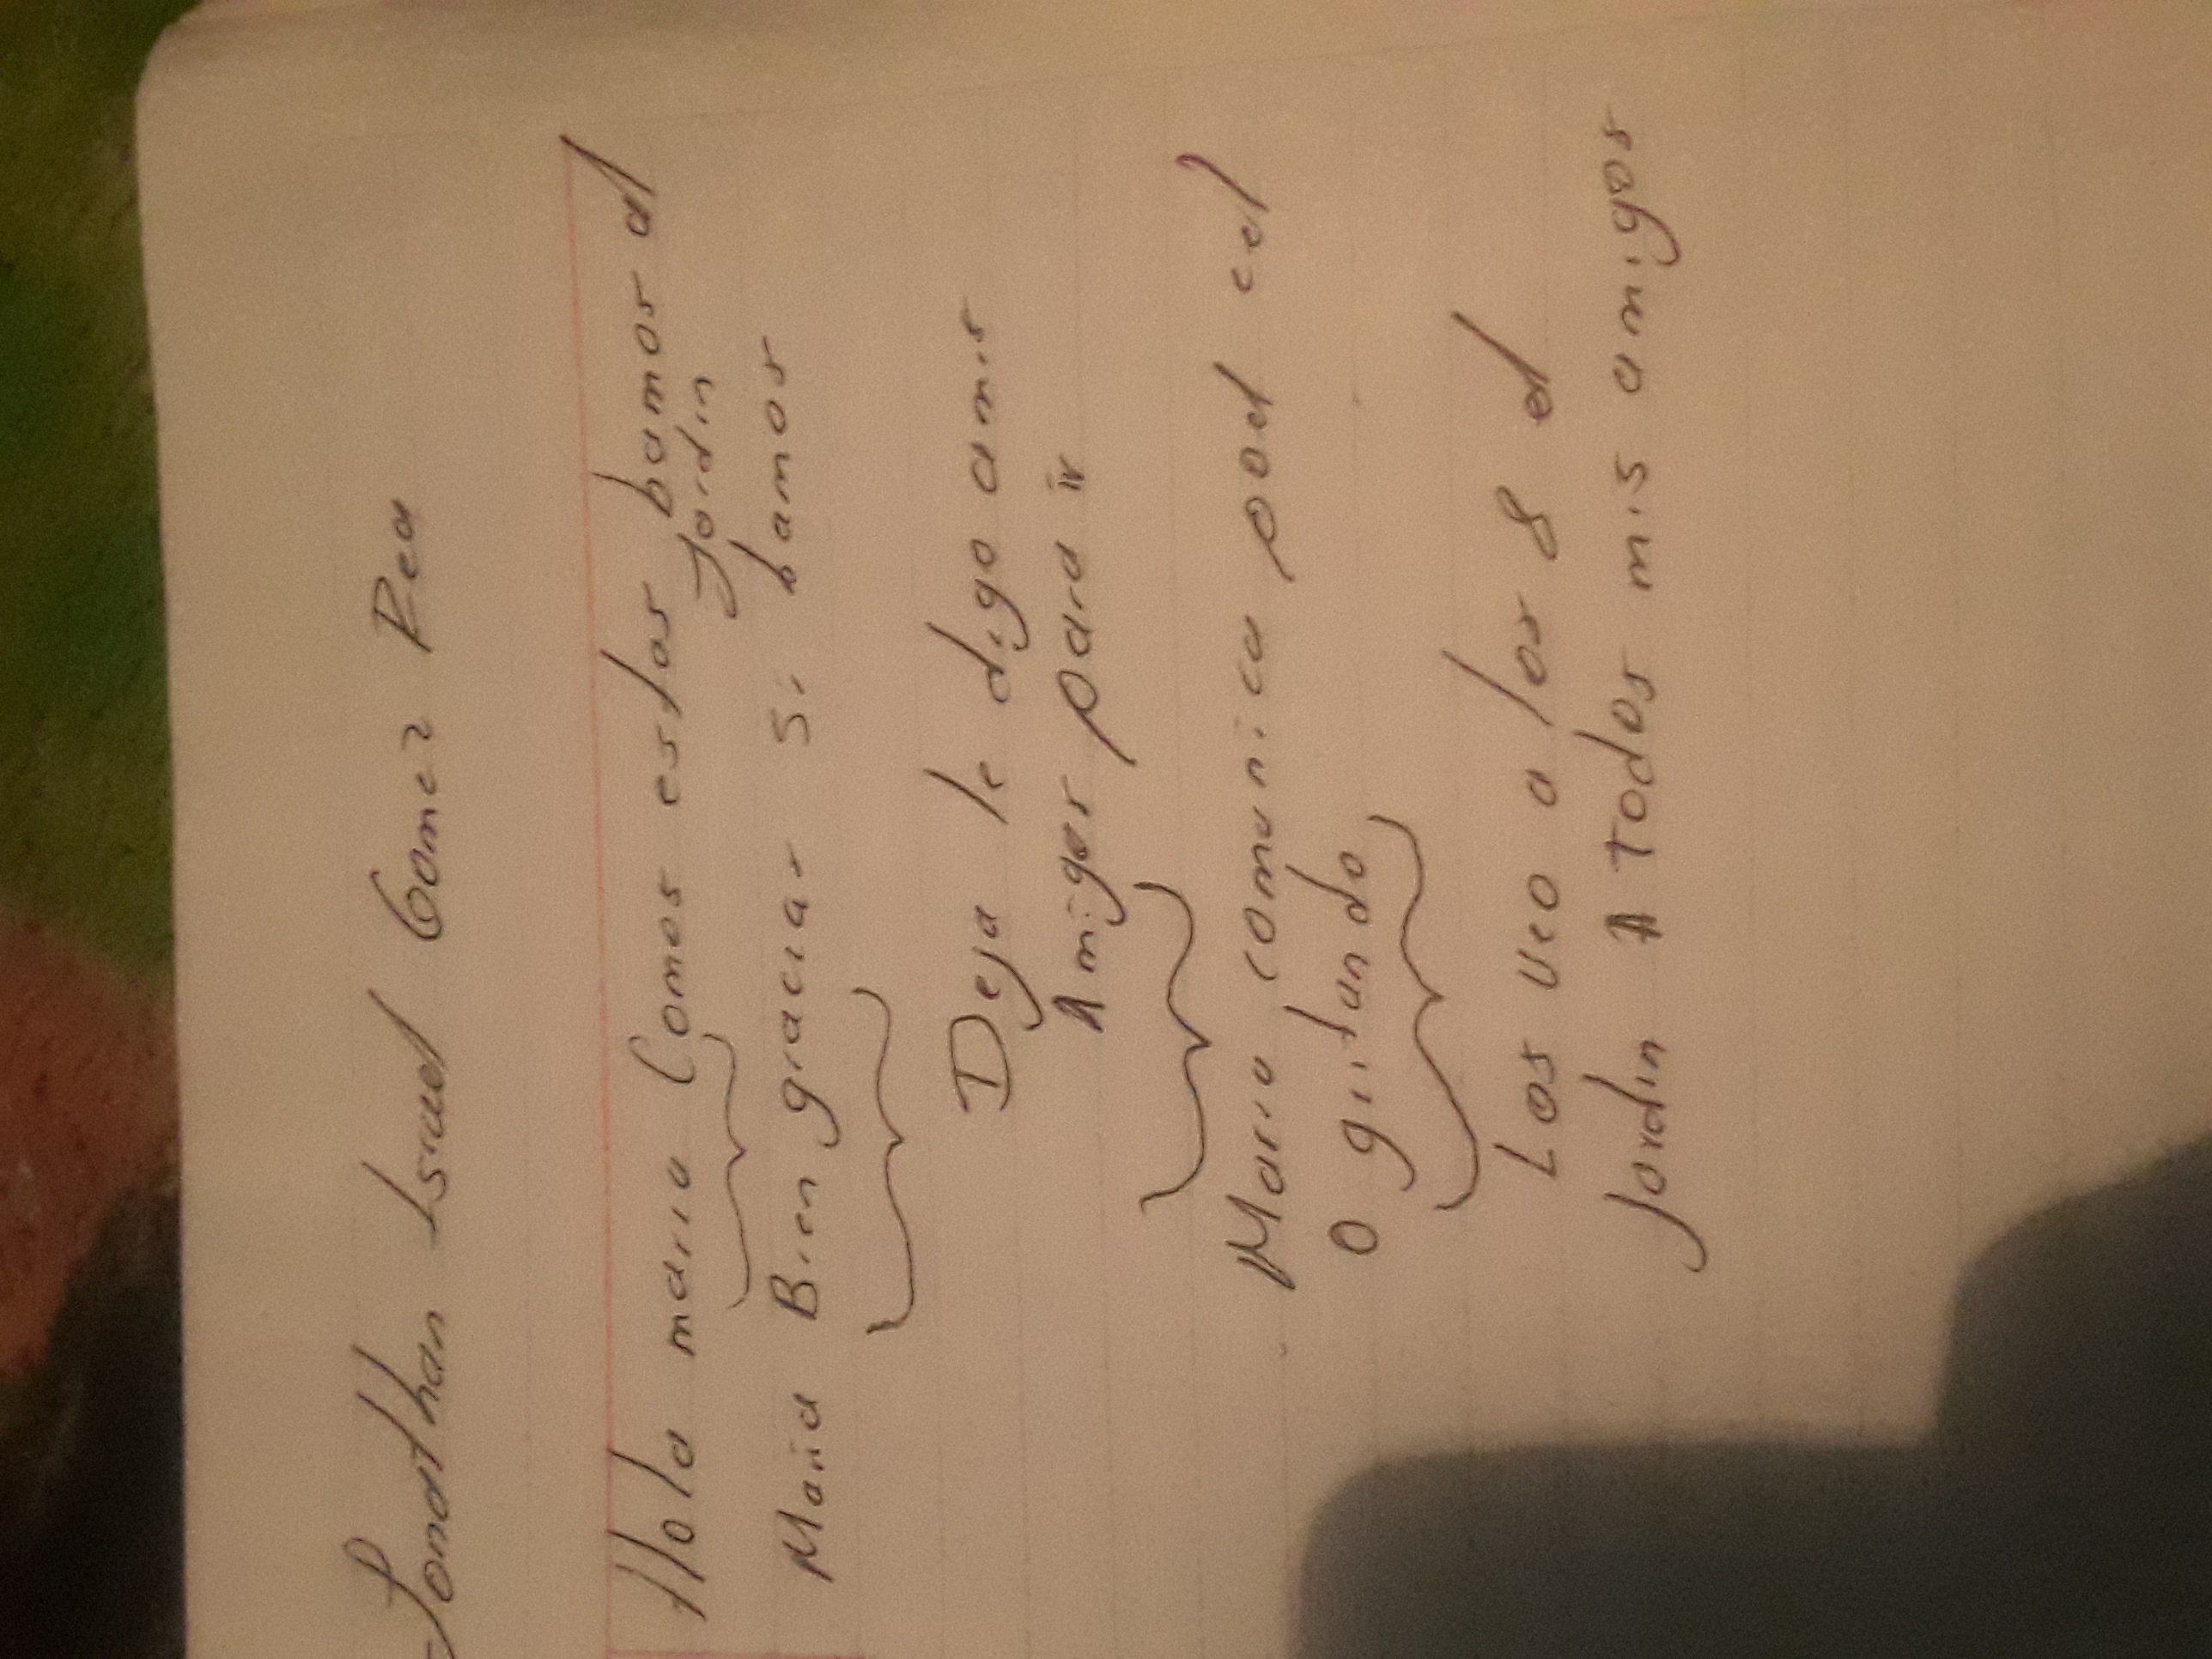 Jonathan Israel Gomez Rea
Hola maria Comos estas bamos al
Jardin
Maria Bien gracias Si bamos
Deja le digo amis
Amigos para ir
Maria comunica poel cel
O gritando
Los veo a las 8 el
Jardin A todos mis amigos